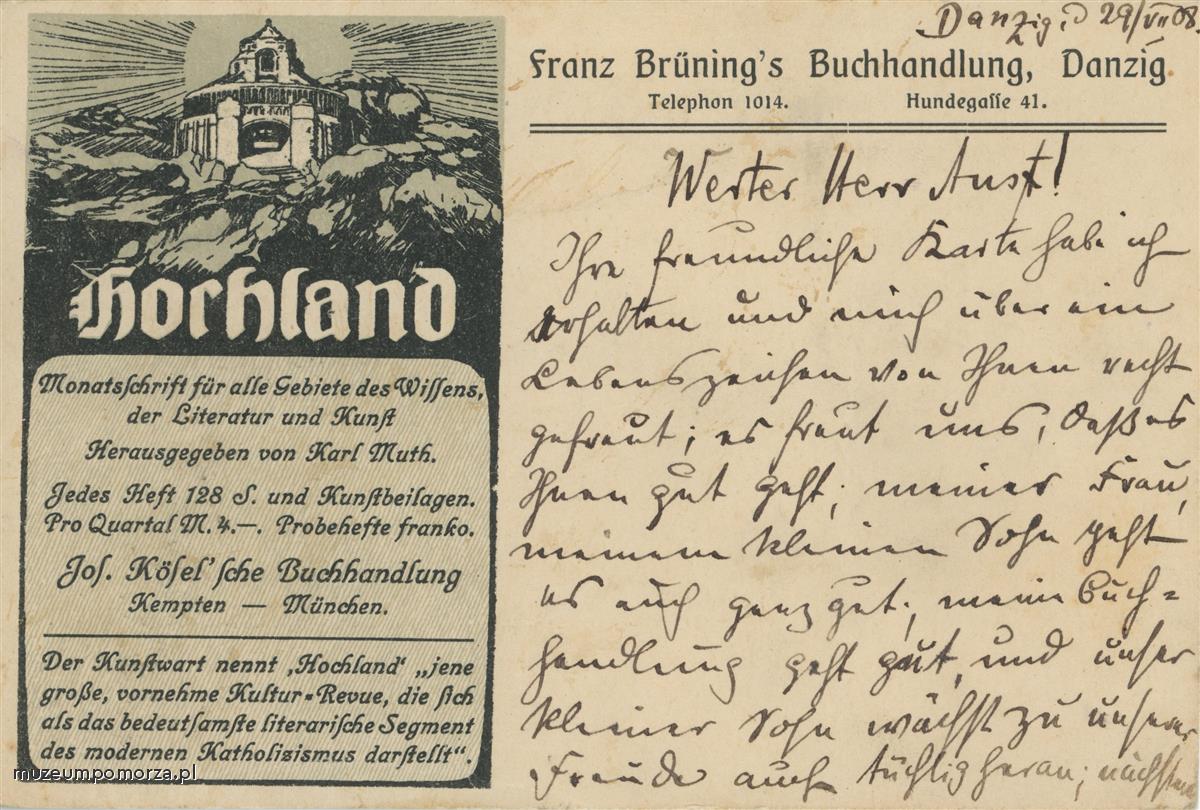 Hochland
Monatsſchrift für alle Gebiete des Wiſſens,
der Literatur und Kunſt
Herausgegeben von Karl Muth.
Jedes Heft 128 S. und Kunſtbeilagen.
Pro Quartal M. 4.—. Probehefte franko.
Joſ. Köſel'ſche Buchhandlung
Kempten — München.
Der Kunſtwart nennt ‚Hochland‘ „jene
große, vornehme Kultur-Revue, die ſich
als das bedeutſamſte literariſche Segment
des modernen Katholizismus darſtellt“.
Danzig, d 29/VII 08.
Franz Brüning's Buchhandlung, Danzig
Telephon 1014. Hundegaſſe 41.
Werter Herr Aust!
Ihre freundliche Karte habe ich
erhalten und mich über ein
Lebenszeichen von Ihnen recht
gefreut; es freut uns, daß es
Ihnen gut geht; meiner Frau,
meinem kleinen Sohn geht
es auch ganz gut; meine Buch=
handlung geht gut, und unser
kleiner Sohn wächst zu unserer
Freude auch tüchtig heran;
muzeumpomorza.pl